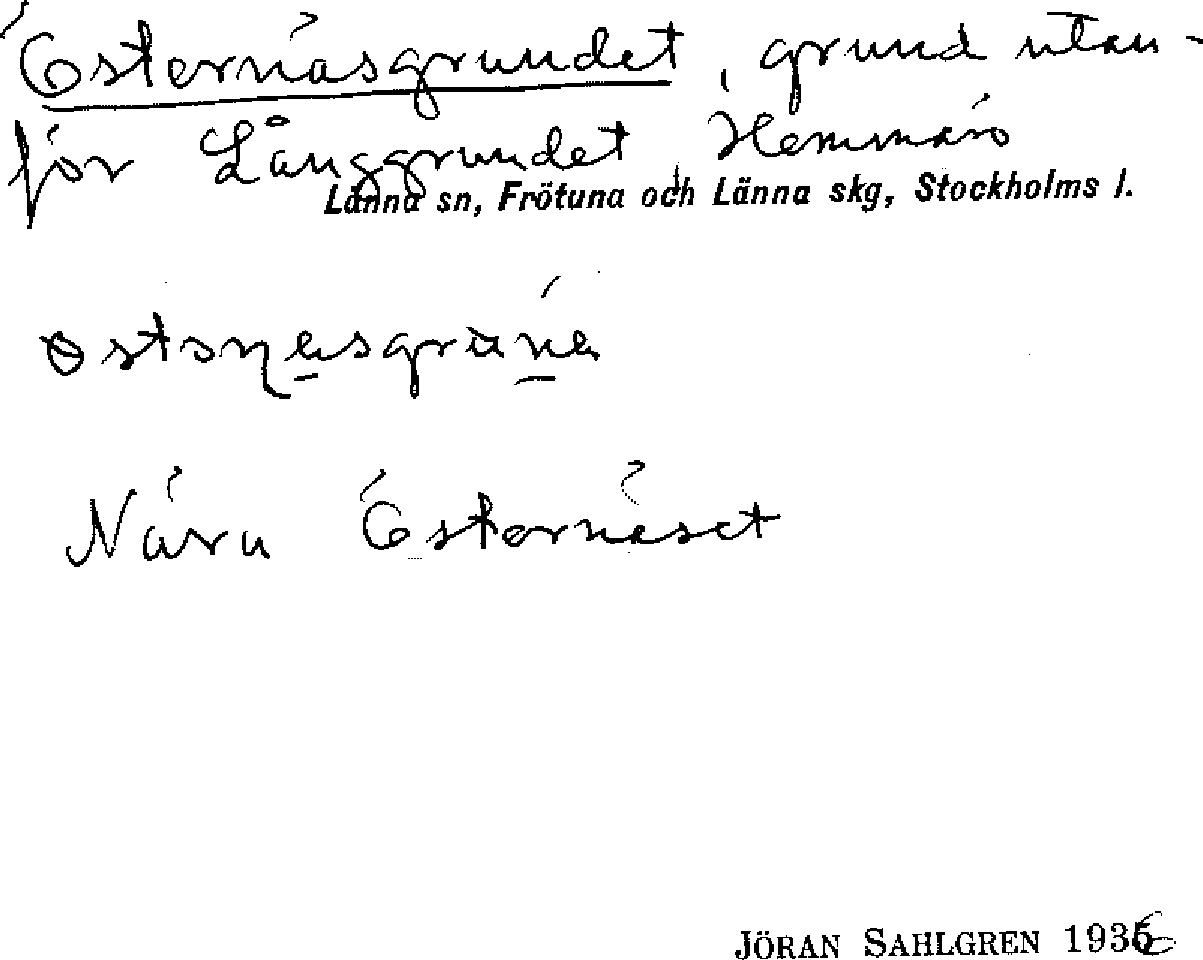 Östernäsgrundet, grund utan-
för Långgrundet, Hemmarö
Länna sn, Frötuna och Länna skg, Stockholms l.
Nära Östernäset
JÖRAN SAHLGREN 1936